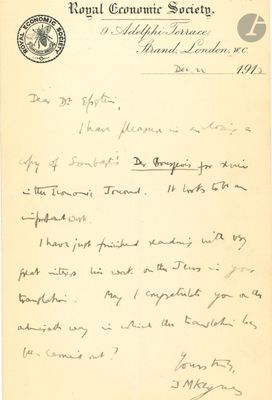 Royal Economic Society.
9 Adelphi Terrace,
Strand, London, W.C.
ROYAL ECONOMIC SOCIETY
Dec. 22 191
Dear Dr Epstein,
I have pleasure in enclosing a
copy of Sombart's Der Bourgeois for review
in the Economic Journal. It looks to be an
important work.
I have just finished reading with very
great interest his work on the Jews in your
translation. May I congratulate you on the
admirable way in which the translation has
been carried out?
Yours truly,
J M Keynes